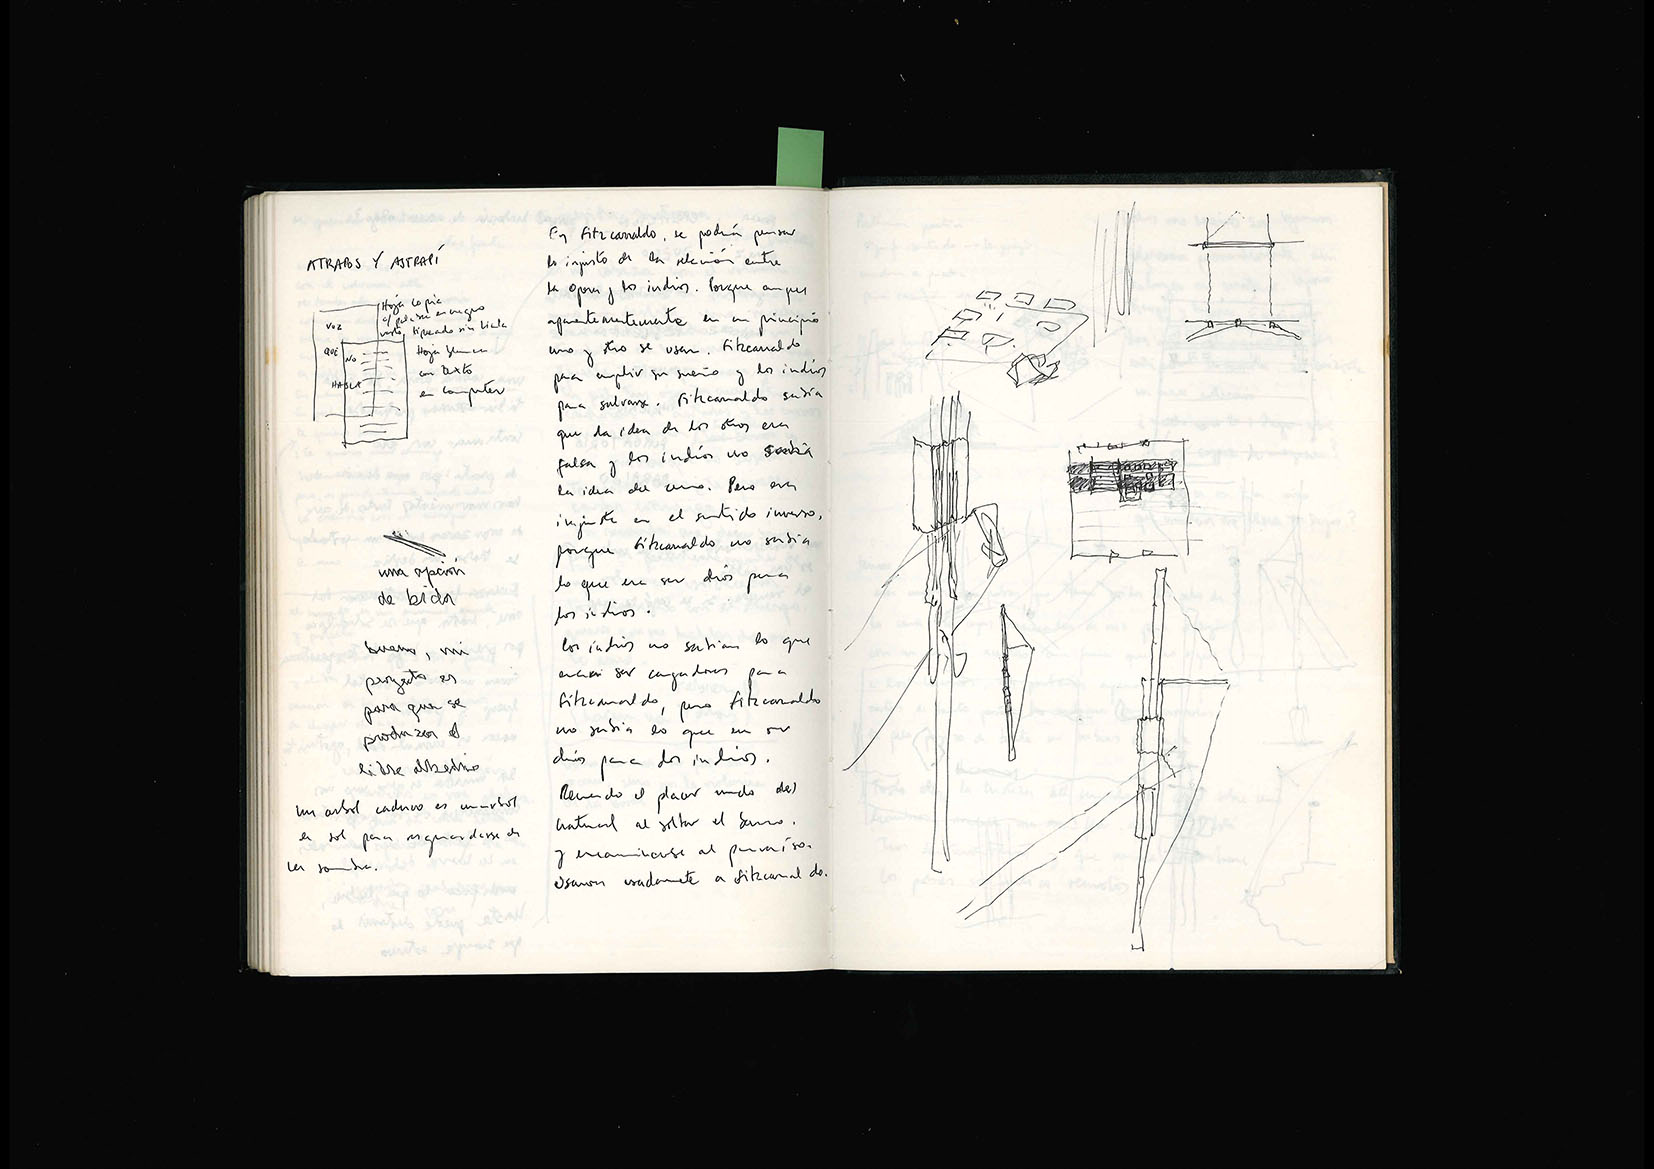 ATRABS Y ASTRAPÍ
Hoja copia
tipeado sin
VOZ
QUE
NO
HABLA
Hoja blanca
con texto
en computer
una opción
de vida
bueno, mi
proyecto es
para que se
produzca el
libre albedrío
un arbol caduco es un arbol
de
la sombra.
En Fitzcarraldo, se podría pensar
lo injusto de la relación entre
la opera y los indios. Porque aunque
aparentemente en un principio
uno y otro se usan. Fitzcarraldo
para cumplir su sueño y los indios
para salvarse. Fitzcarraldo sabía
que la idea de los otros era
falsa y los indios no sabía
la idea del uno. Pero era
injusto en el sentido inverso,
porque Fitzcarraldo no sabía
lo que era ser dios para
los indios.
Los indios no sabían lo que
era ser cargadores para
Fitzcarraldo, pero Fitzcarraldo
no sabía lo que era ser
dios para los indios.
Recuerdo el placer mudo del
natural al soltar el barco.
y encaminarse al paraíso.
usadamente a Fitzcarraldo.